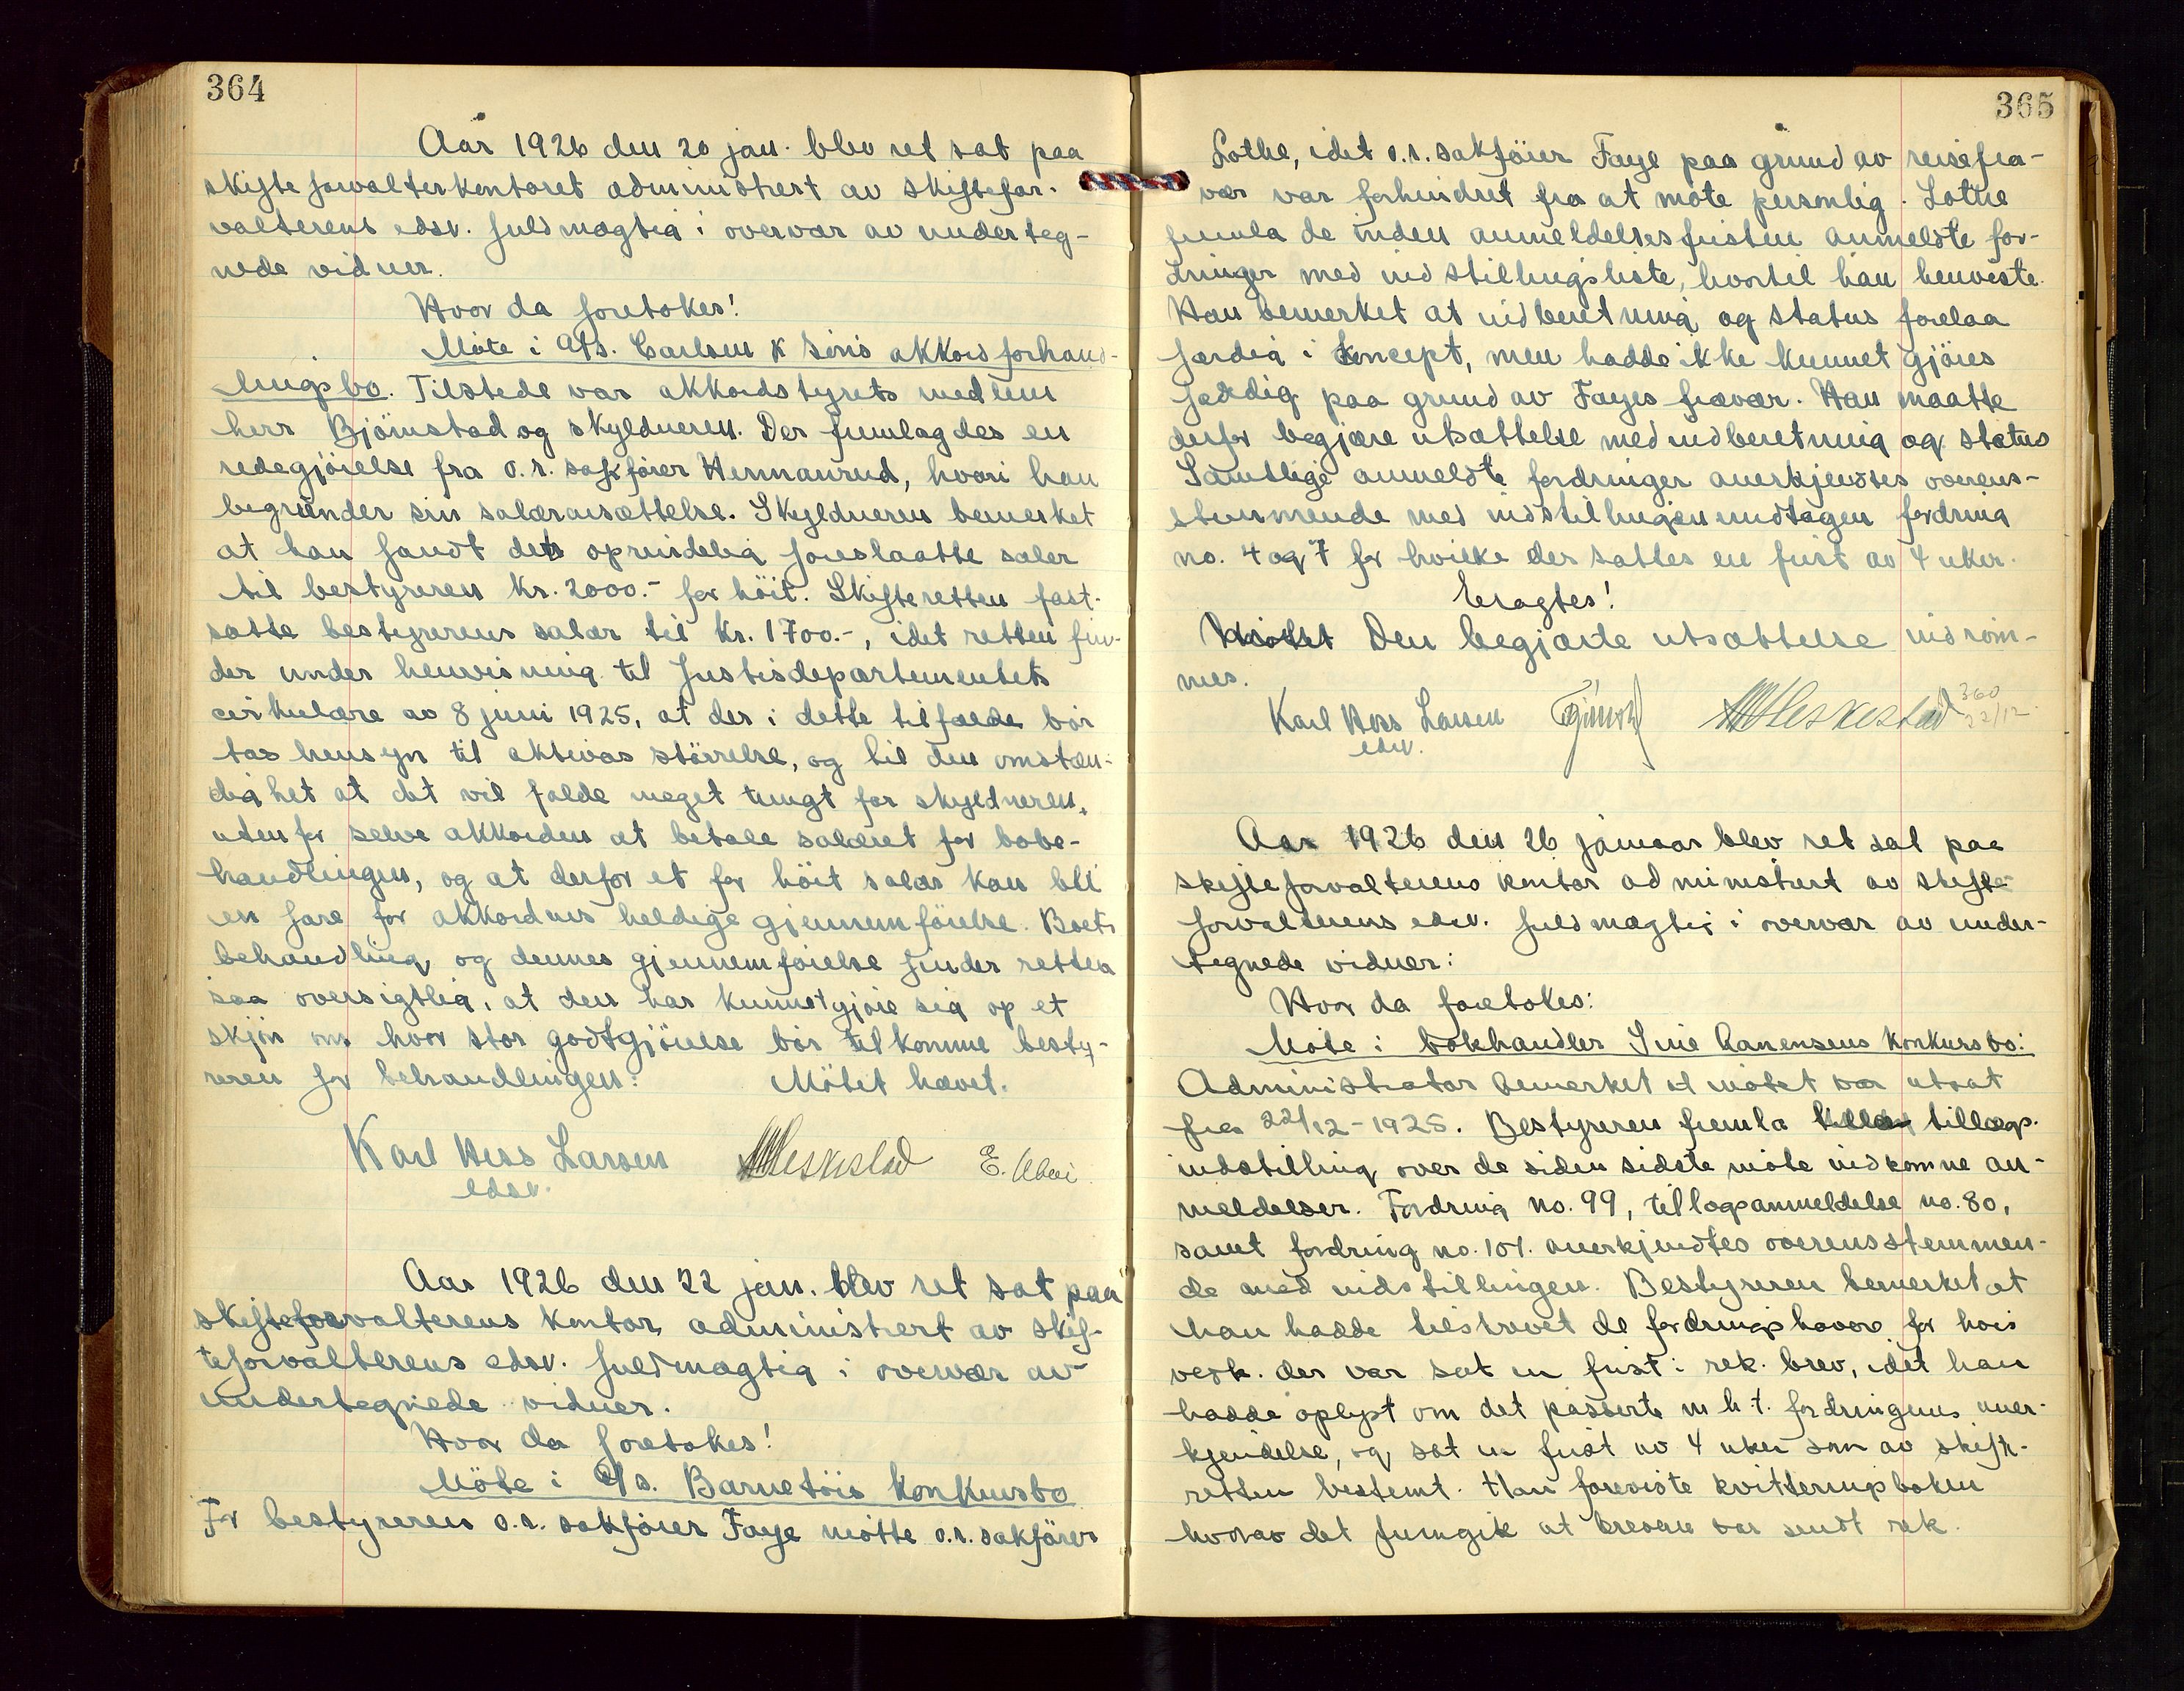 364
Aar 1926 den 20 jan. blev ret sat paa
skifteforvalterkontoret administrert av skiftefor-
valterens edsv. fuldmægtig i overvær av underteg-
nede vidner.
Hvor da foretokes!
Møte i A/s. Carlsen & Søns akkordforhand-
lingsbo. Tilstede var akkordstyrets medlem
herr Bjørnstad og skyldneren. Der fremlagdes en
redegjørelse fra o.r. sakfører Hermanrud, hvori han
begrunder sin salæransættelse. Skyldneren bemerket
at han fandt det oprindelig foreslaatte salær
til bestyreren kr. 2000.- for høit. Skifteretten fast-
satte bestyrerens salær til kr. 1700.-, idet retten fin-
der under henvisning til Justisdepartementets
cirkulære av 8 juni 1925, at der i dette tilfælde bør
tas hensyn til aktivas størrelse, og til den omstæn-
dighet at det vil falde meget tungt for skyldneren,
utenfor selve akkorden at betale salæret for bobe-
handlingen, og at derfor et for høit salær kan bli
en fare for akkordens heldige gjennemførelse. Boets
behandling og dennes gjennemførelse finder retten
saa oversigtlig, at den har kunnet gjøre sig op et
skjøn om hvor stor godtgjørelse bør tilkomme besty-
reren for behandlingen: Møtet hævet.
Karl Hess Larsen MHeskestad E.
edsv.
Aar 1926 den 22 jan. blev ret sat paa
skifteforvalterens kontor, administrert av skif-
teforvalterens edsv. fuldmægtig i overvær av
undertegnede vidner.
Hvor da foretokes!
Møte i A/s. Barnetøis konkursbo
For bestyreren o.r. sakfører Faye møtte o.r. sakfører
365
Lothe, idet o.r. sakfører Faye paa grund av reisefra-
vær var forhindret fra at møte personlig. Lothe
fremla de inden anmeldelsesfristen anmeldte for-
dringer med indstillingsliste, hvortil han henviste.
Han bemerket at indberetning og status forelaa
færdig i koncept, men hadde ikke kunnet gjøres
færdig paa grund av Fayes fravær. Han maatte
derfor begjære utsættelse med indberetning og status
Samtlige anmeldte fordringer anerkjendtes overens-
stemmende med indstillingen undtagen fordring
no. 4 og 7 for hvilke der sattes en frist av 4 uker.
Eragtes!
Den begjærte utsættelse indrøm-
mes.
Karl Hess Larsen MHeskestad 360
edsv. 22/12
Aar 1926 den 26 januar blev ret sat paa
skifteforvalterens kontor administrert av skifte-
forvalterens edsv. fuldmægtig i overvær av under-
tegnede vidner:
Hvor da foretokes:
Møte i bokhandler Sine Aanensens konkursbo:
Administrator bemerket at møtet var utsat
fra 22/12-1925. Bestyreren fremla tillægs-
indstilling over de siden sidste møte indkomne an-
meldelser. Fordring no. 99, tillægsanmeldelse no. 80,
samt fordring no. 101. anerkjendtes overensstemmen-
de med indstillingen. Bestyreren bemerket at
han hadde tilskrevet de fordringshavere for hvis
vedk. der var sat en frist i rek. brev, idet han
hadde oplyst om det passerte m.h.t. fordringens aner-
kjendelse, og sat en frist av 4 uker som av skifte-
retten bestemt. Han foreviste kvitteringsboken
hvorav det fremgik at brevene var sendt rek.